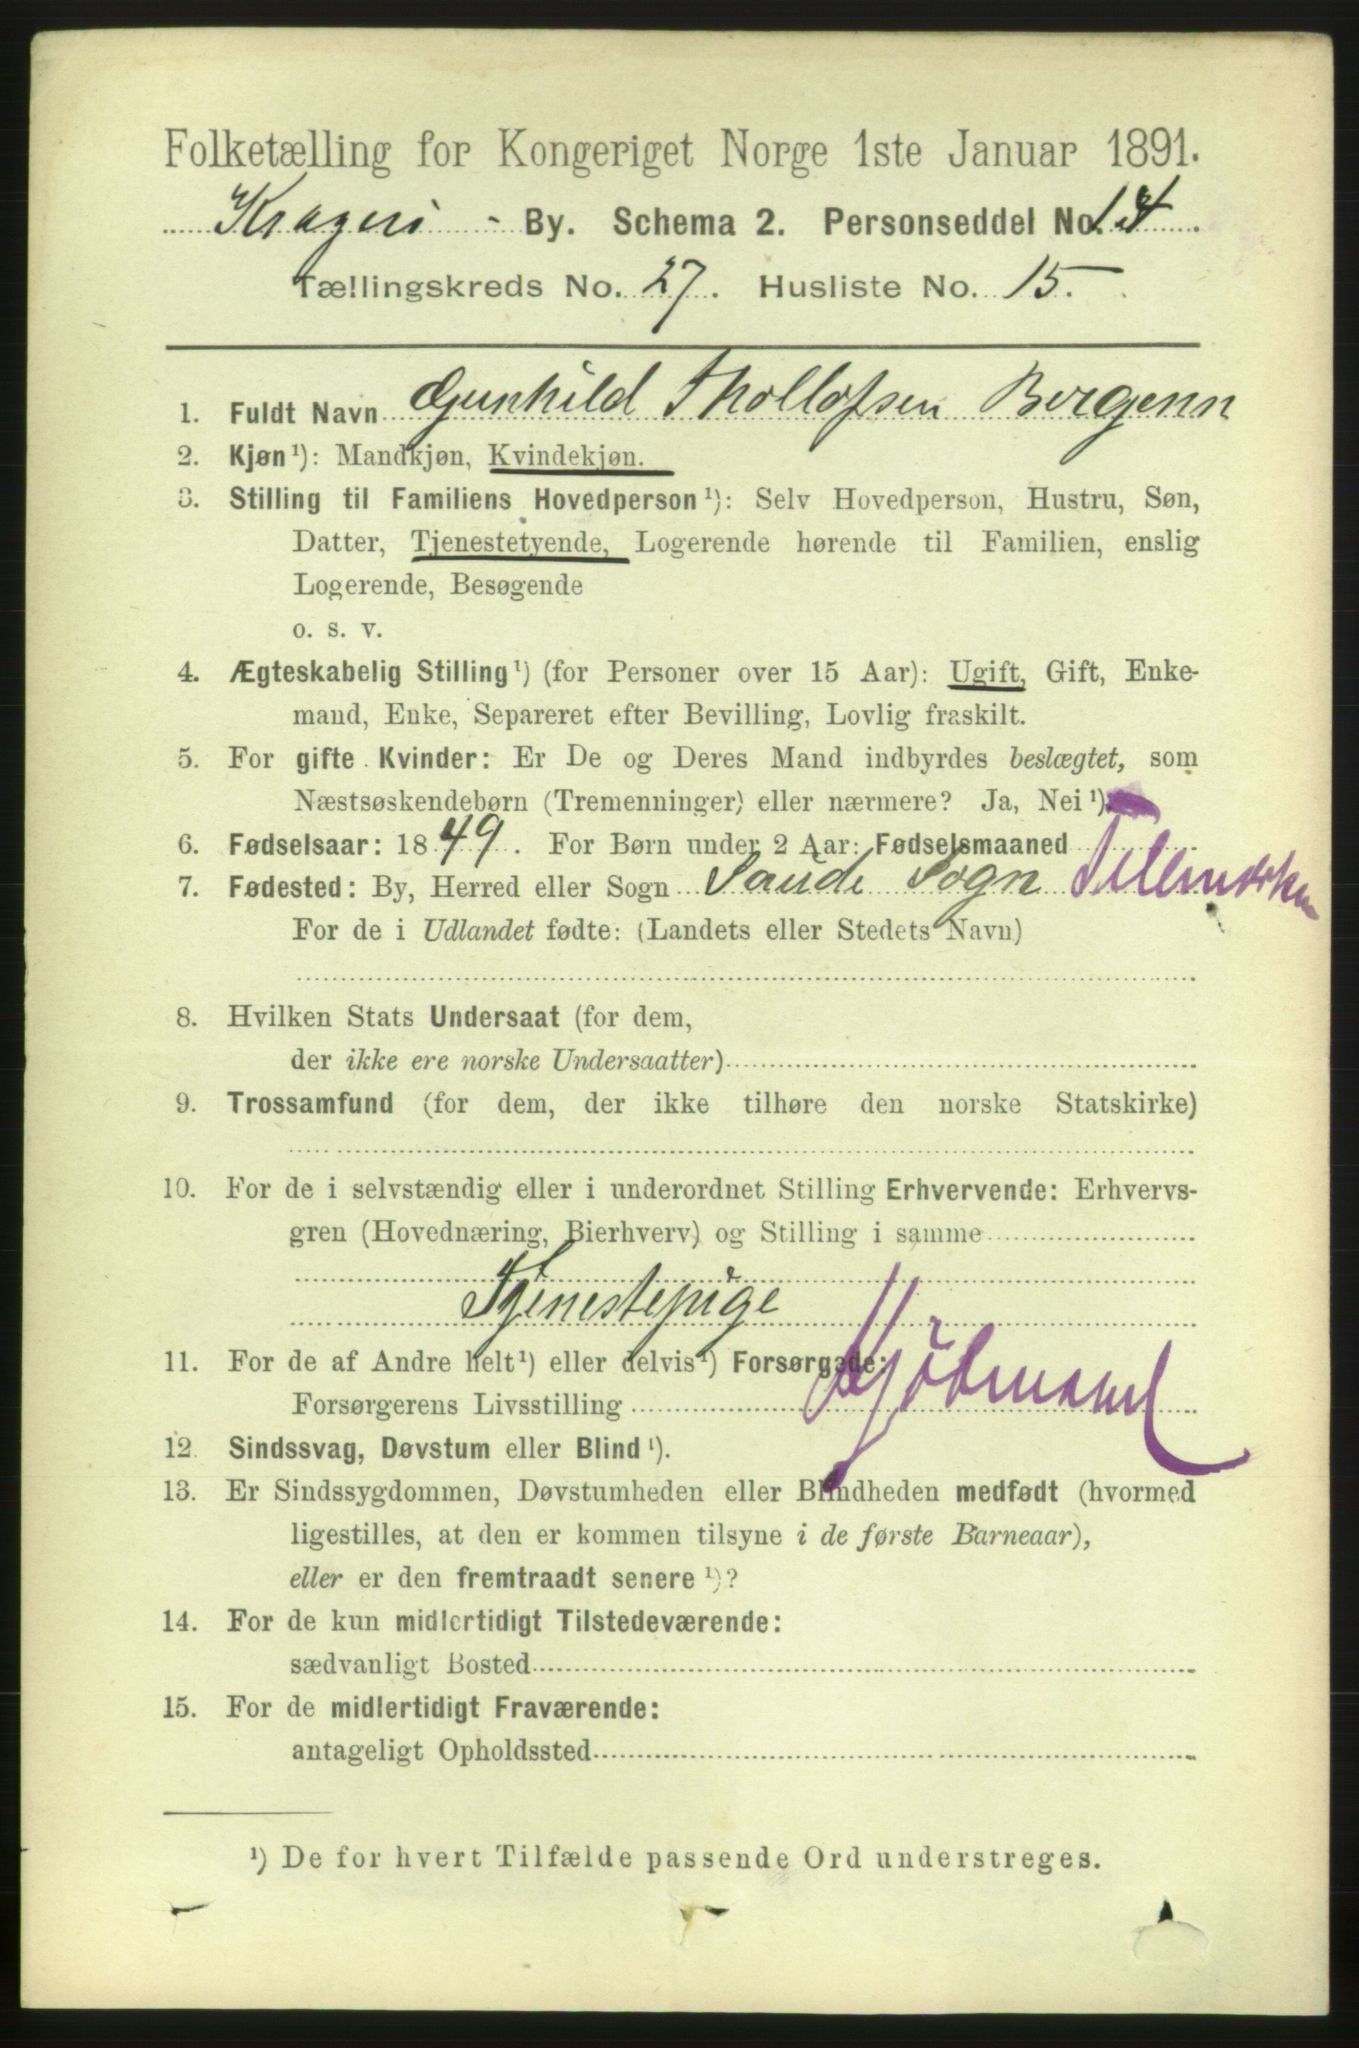 Folketælling for Kongeriget Norge 1ste Januar 1891.
Kragerö - By. Schema 2. Personseddel No. 14
Tællingskreds No. 27. Husliste No. 15.
1. Fuldt Navn Gunhild Thollofsen Bergenn
2. Kjøn¹): Mandkjøn, Kvindekjøn.
3. Stilling til Familiens Hovedperson¹): Selv Hovedperson, Hustru, Søn,
Datter, Tjenestetyende, Logerende hørende til Familien, enslig
Logerende, Besøgende
o. s. v.
4. Ægteskabelig Stilling¹) (for Personer over 15 Aar): Ugift, Gift, Enke-
mand, Enke, Separeret efter Bevilling, Lovlig fraskilt.
5. For gifte Kvinder: Er De og Deres Mand indbyrdes beslægtet, som
Næstsøskendebørn (Tremenninger) eller nærmere? Ja, Nei¹).
6. Fødselsaar: 1849. For Børn under 2 Aar: Fødselsmaaned
7. Fødested: By, Herred eller Sogn Saude Sogn Telemarken
For de i Udlandet fødte: (Landets eller Stedets Navn)
8. Hvilken Stats Undersaat (for dem,
der ikke ere norske Undersaatter)
9. Trossamfund (for dem, der ikke tilhøre den norske Statskirke)
10. For de i selvstændig eller i underordnet Stilling Erhvervende: Erhvervs-
gren (Hovednæring, Bierhverv) og Stilling i samme
Tjenestepige
11. For de af Andre helt¹) eller delvis¹) Forsørgede:
Forsørgerens Livsstilling Kjöbmand
12. Sindssvag, Døvstum eller Blind¹).
13. Er Sindssygdommen, Døvstumheden eller Blindheden medfødt (hvormed
ligestilles, at den er kommen tilsyne i de første Barneaar),
eller er den fremtraadt senere¹)?
14. For de kun midlertidigt Tilstedeværende:
sædvanligt Bosted
15. For de midlertidigt Fraværende:
antageligt Opholdssted
¹) De for hvert Tilfælde passende Ord understreges.